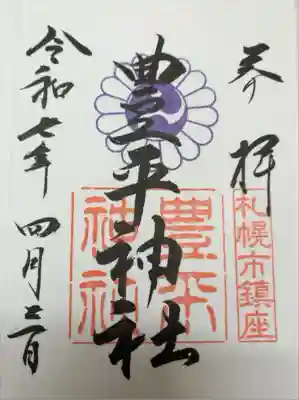 奉拝
札幌市鎮座
豊平神社
豊平神社
令和七年四月二日